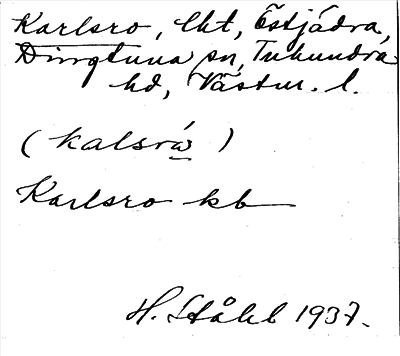 Karlsro, lht, Östjädra,
Dingtuna sn, Tuhundra
hd, Västm. l.
(kalsrów)
Karlsro kb
H. Ståhl 1937.